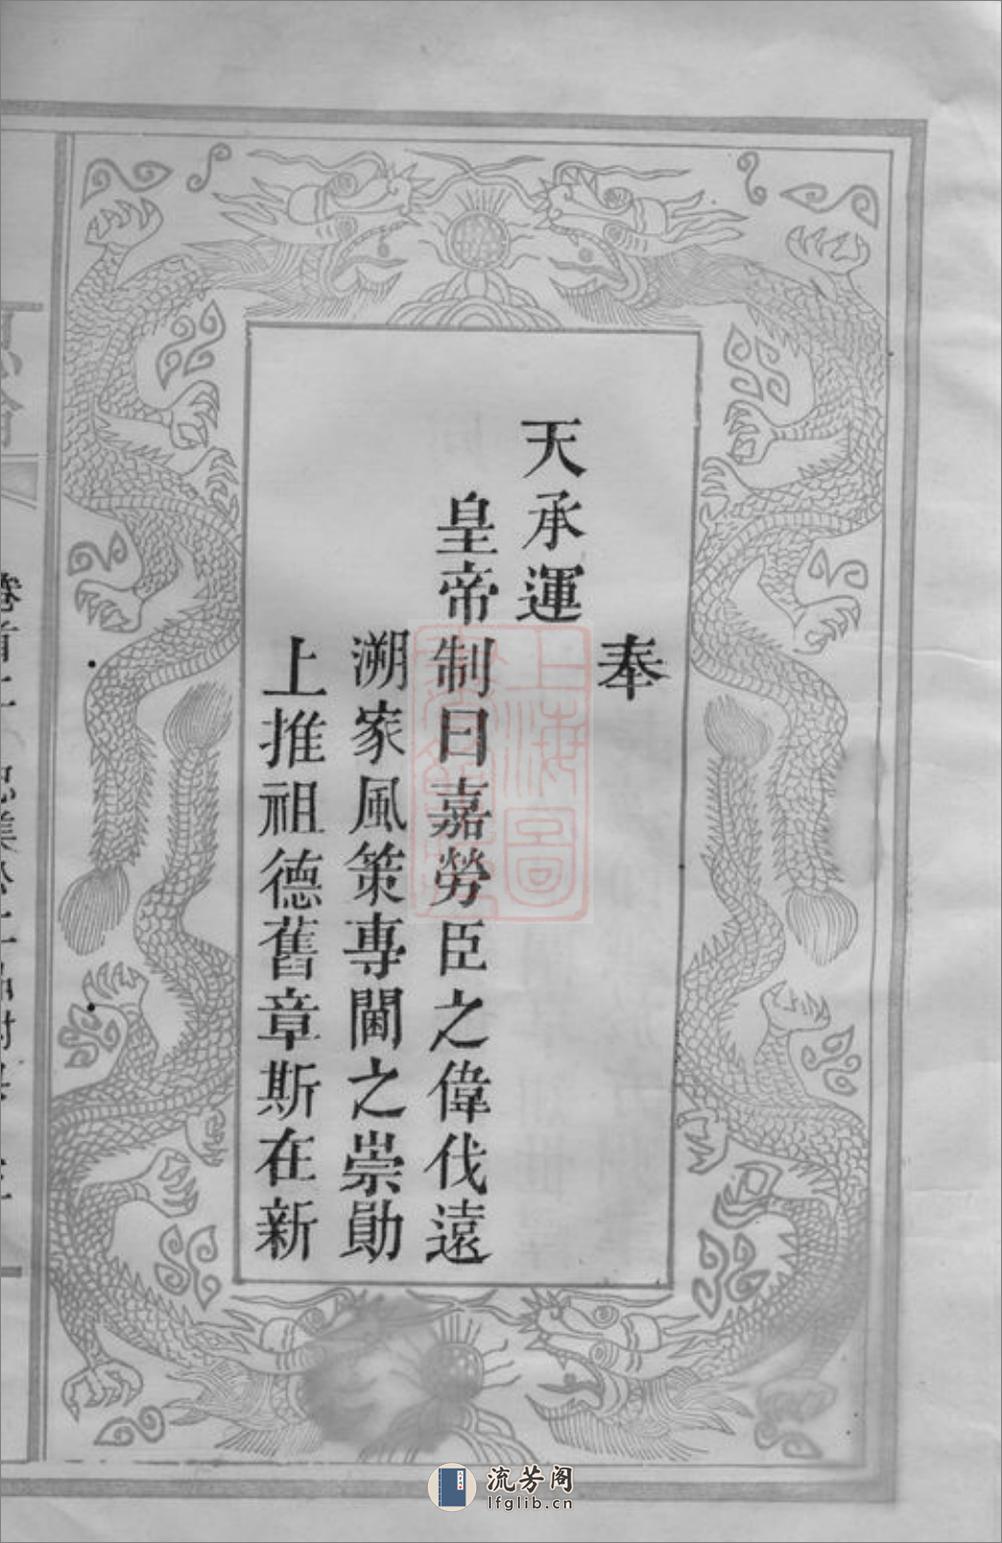 奉
天承運
皇帝制曰嘉勞臣之偉伐遠
溯家風策專閫之崇勛
上推祖德舊章斯在新
上海圖
流芳阁
lfglib.cn